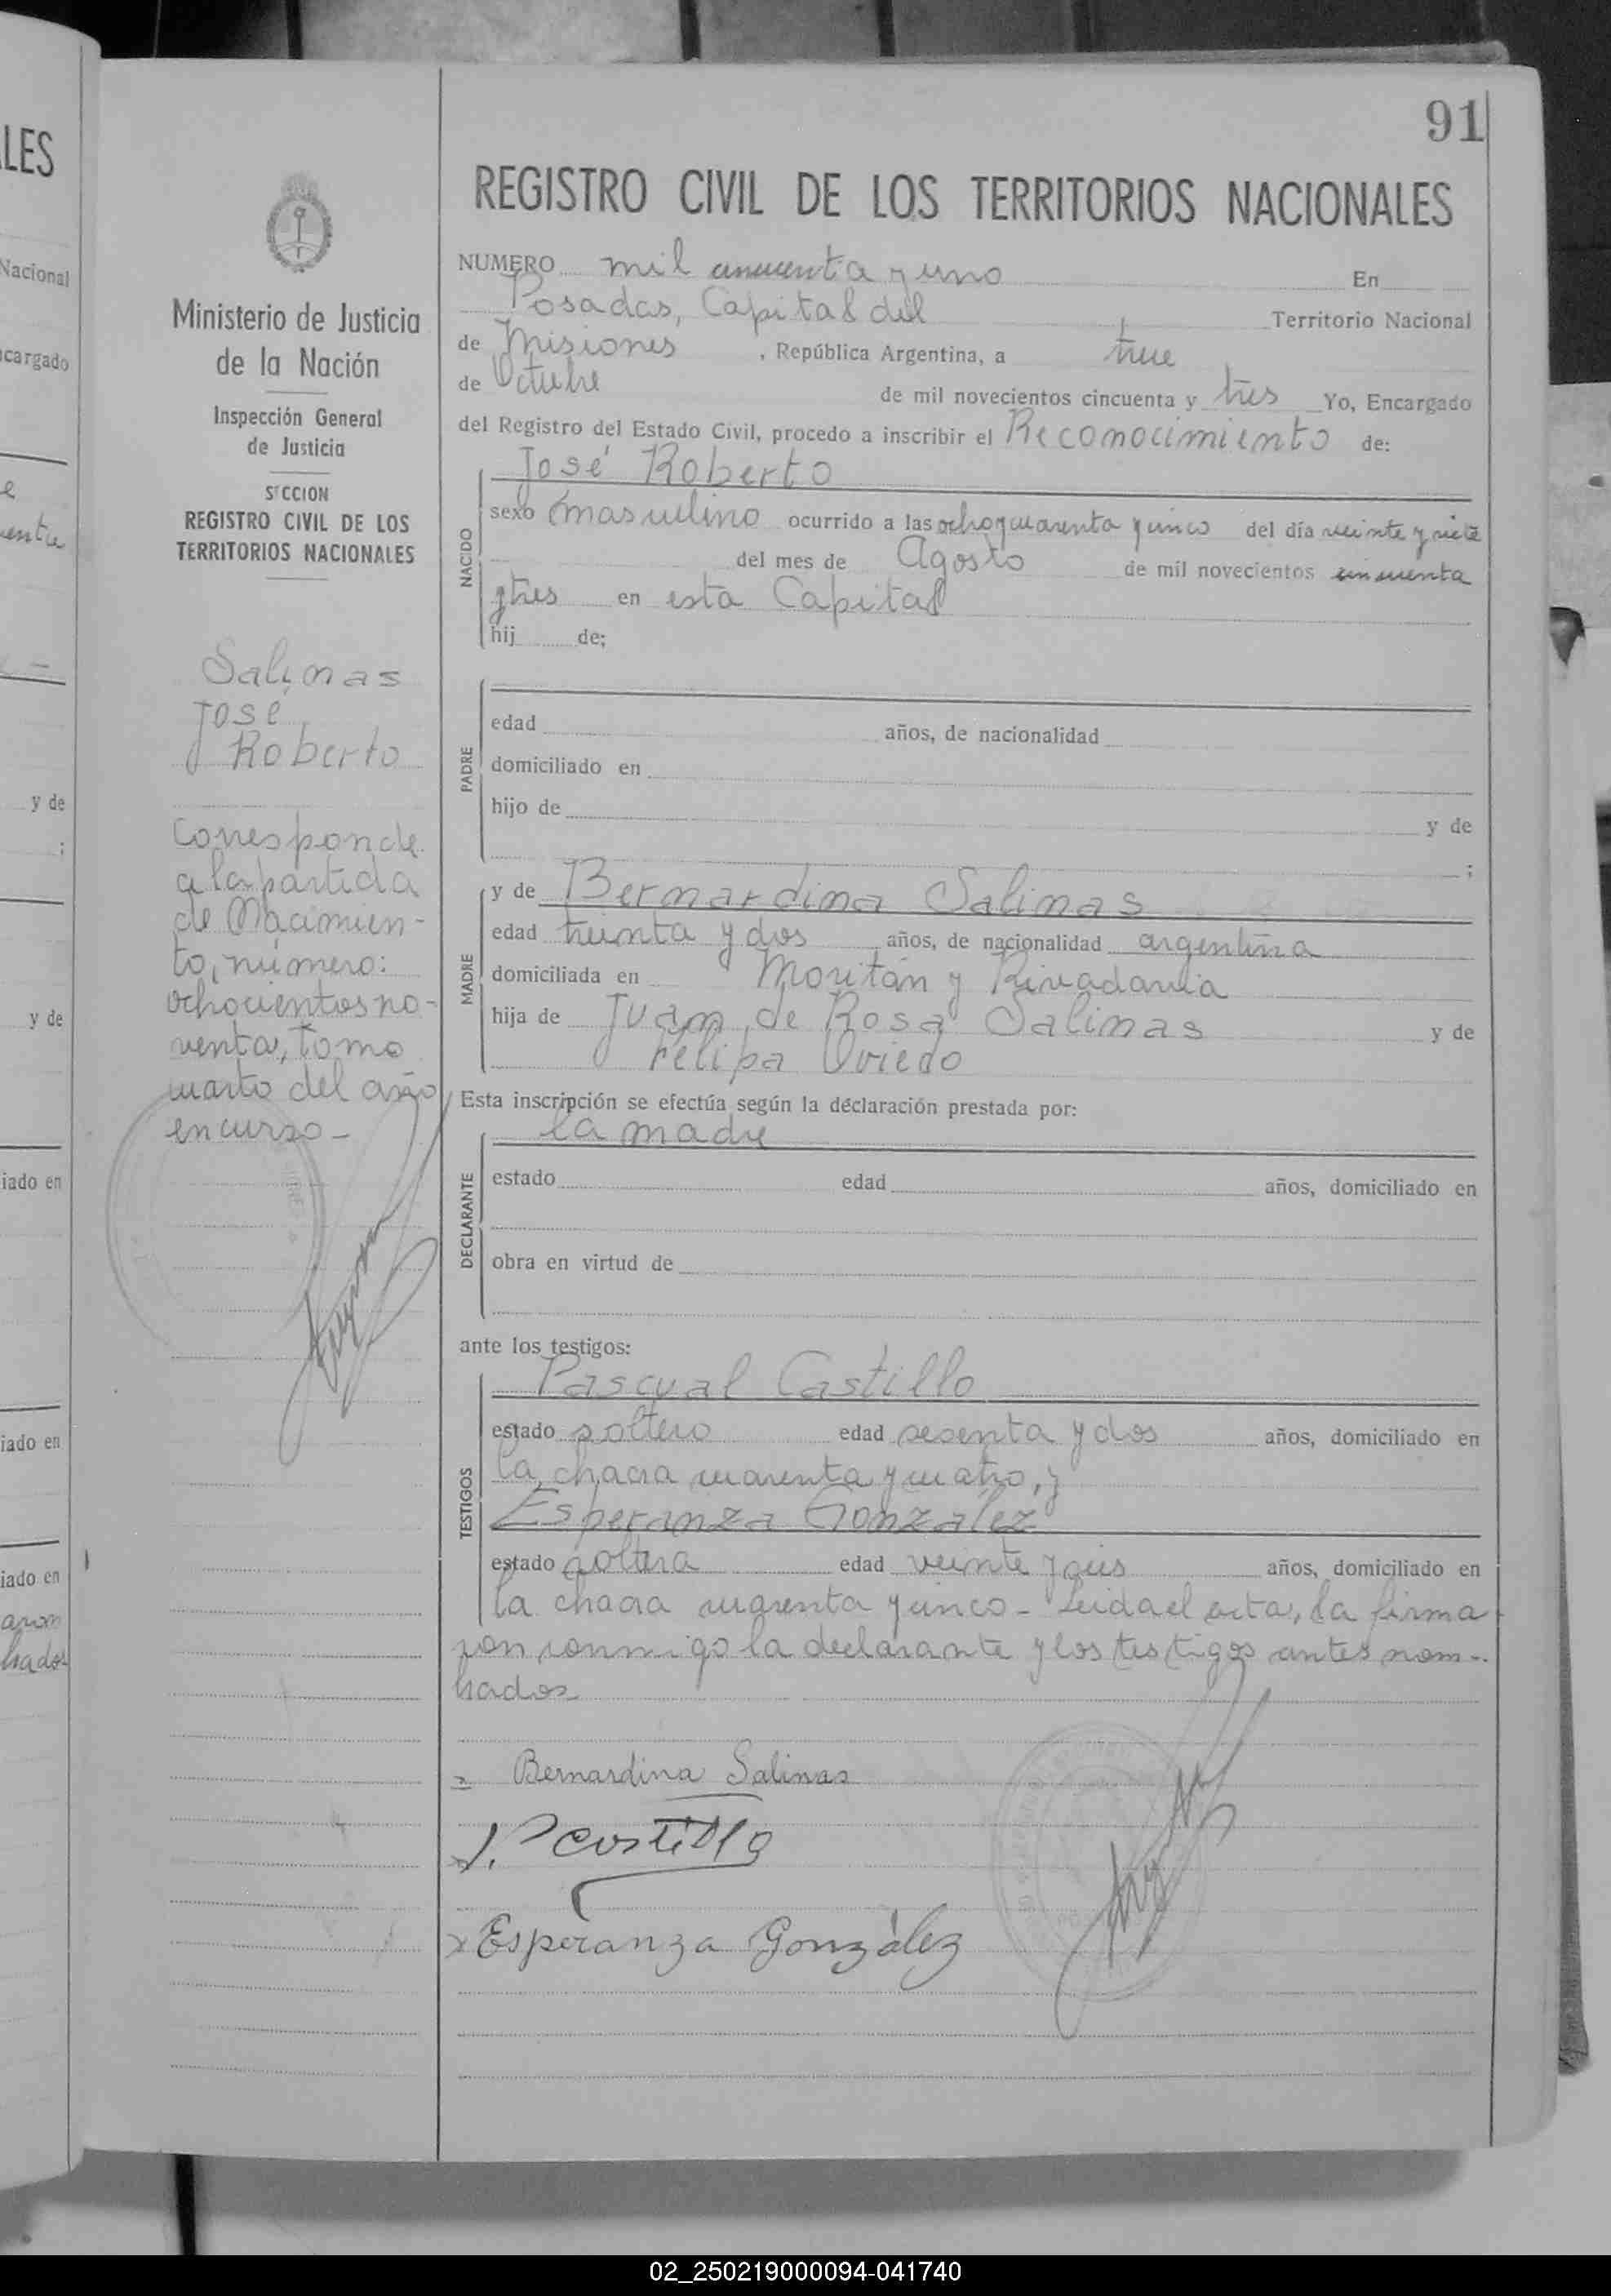 91
REGISTRO CIVIL DE LOS TERRITORIOS NACIONALES
NUMERO mil cincuenta y uno En
Posadas, Capital del Territorio Nacional
de Misiones, República Argentina, a trece
de Octubre de mil novecientos cincuenta y tres Yo, Encargado
del Registro del Estado Civil, procedo a inscribir el Reconocimiento de:
José Roberto
NACIDO
sexo masculino ocurrido a las ocho y cuarenta y cinco del día veinte y siete
del mes de Agosto de mil novecientos cincuenta
y tres en esta Capital
hij de;
PADRE
edad años, de nacionalidad
domiciliado en
hijo de y de
;
MADRE
y de Bernardina Salinas
edad treinta y dos años, de nacionalidad argentina
domiciliada en Moritán y Rivadavia
hija de Juan de Rosa Salinas y de
Felipa Oviedo
Esta inscripción se efectúa según la declaración prestada por:
la madre
DECLARANTE
estado edad años, domiciliado en
obra en virtud de
ante los testigos:
TESTIGOS
Pascual Castillo
estado soltero edad sesenta y dos años, domiciliado en
la chacra cuarenta y cuatro, y
Esperanza González
estado soltera edad veinte y seis años, domiciliado en
la chacra cuarenta y cinco - Leida el acta, la firma-
ron conmigo la declarante y los testigos antes nom-
brados
Bernardina Salinas
P. Castillo
Esperanza González
Ministerio de Justicia
de la Nación
Inspección General
de Justicia
SECCION
REGISTRO CIVIL DE LOS
TERRITORIOS NACIONALES
Salinas
José
Roberto
Corresponde
a la partida
de Nacimien-
to, número:
ochocientos no-
venta, tomo
cuarto del año
en curso -
LES
Nacional
cargado
y de
;
y de
iado en
iado en
iado en
aron
brados
02_250219000094-041740